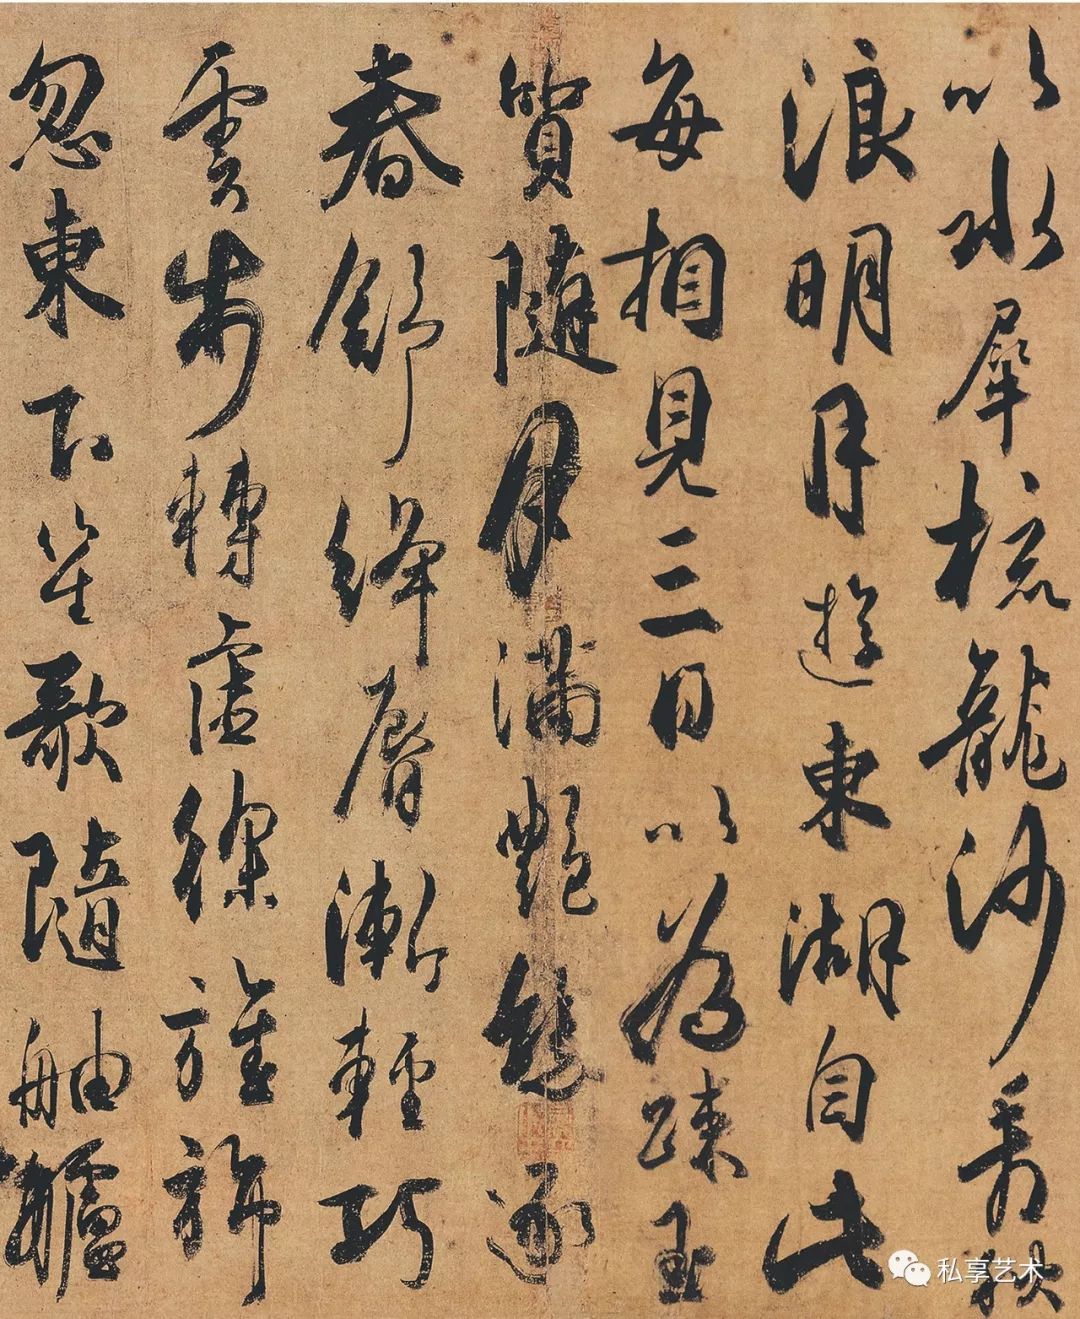 以水犀梳龍沙看秋
浪明月遊東湖自此
每相見三日以為踈玉
質隨月滿艷態逐
春舒絳脣漸輕巧
雲步轉虛徐旌旆
忽東下笙歌隨舳艫
私享艺术